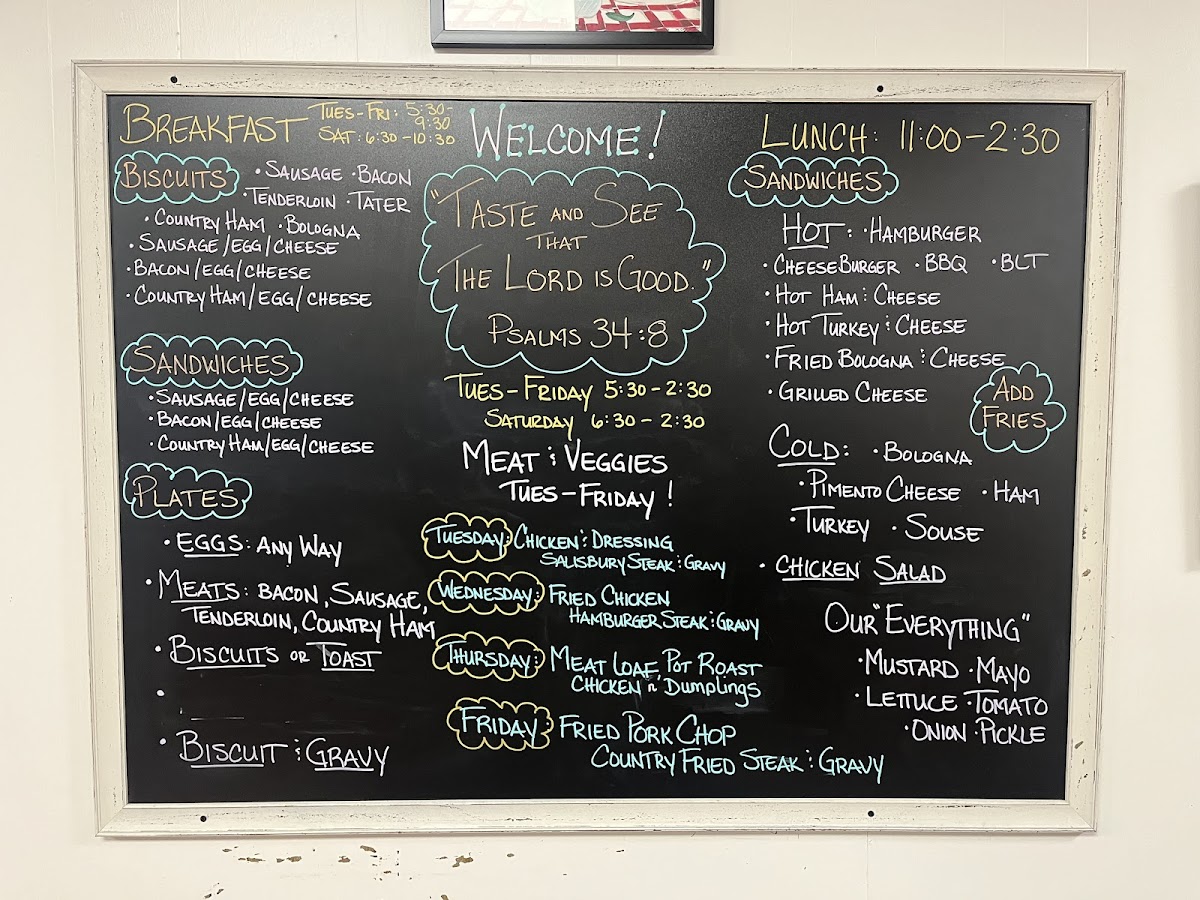 BREAKFAST TUES-FRI: 5:30-
9:30
SAT: 6:30-10:30
BISCUITS · SAUSAGE · BACON
· TENDERLOIN · TATER
· COUNTRY HAM · BOLOGNA
· SAUSAGE/EGG/CHEESE
· BACON/EGG/CHEESE
· COUNTRY HAM/EGG/CHEESE
SANDWICHES
· SAUSAGE/EGG/CHEESE
· BACON/EGG/CHEESE
· COUNTRY HAM/EGG/CHEESE
PLATES
· EGGS: ANY WAY
· MEATS: BACON, SAUSAGE,
TENDERLOIN, COUNTRY HAM
· BISCUITS OR TOAST
·
· BISCUIT & GRAVY
WELCOME!
"TASTE AND SEE
THAT
THE LORD IS GOOD."
PSALMS 34:8
TUES-FRIDAY 5:30-2:30
SATURDAY 6:30-2:30
MEAT & VEGGIES
TUES-FRIDAY!
TUESDAY: CHICKEN & DRESSING
SALISBURY STEAK & GRAVY
WEDNESDAY: FRIED CHICKEN
HAMBURGER STEAK & GRAVY
THURSDAY: MEAT LOAF, POT ROAST
CHICKEN n' DUMPLINGS
FRIDAY: FRIED PORK CHOP
COUNTRY FRIED STEAK & GRAVY
LUNCH: 11:00-2:30
SANDWICHES
HOT: · HAMBURGER
· CHEESEBURGER · BBQ · BLT
· HOT HAM & CHEESE
· HOT TURKEY & CHEESE
· FRIED BOLOGNA & CHEESE
· GRILLED CHEESE
ADD
FRIES
COLD: · BOLOGNA
· PIMENTO CHEESE · HAM
· TURKEY · SOUSE
· CHICKEN SALAD
OUR "EVERYTHING"
· MUSTARD · MAYO
· LETTUCE · TOMATO
· ONION · PICKLE